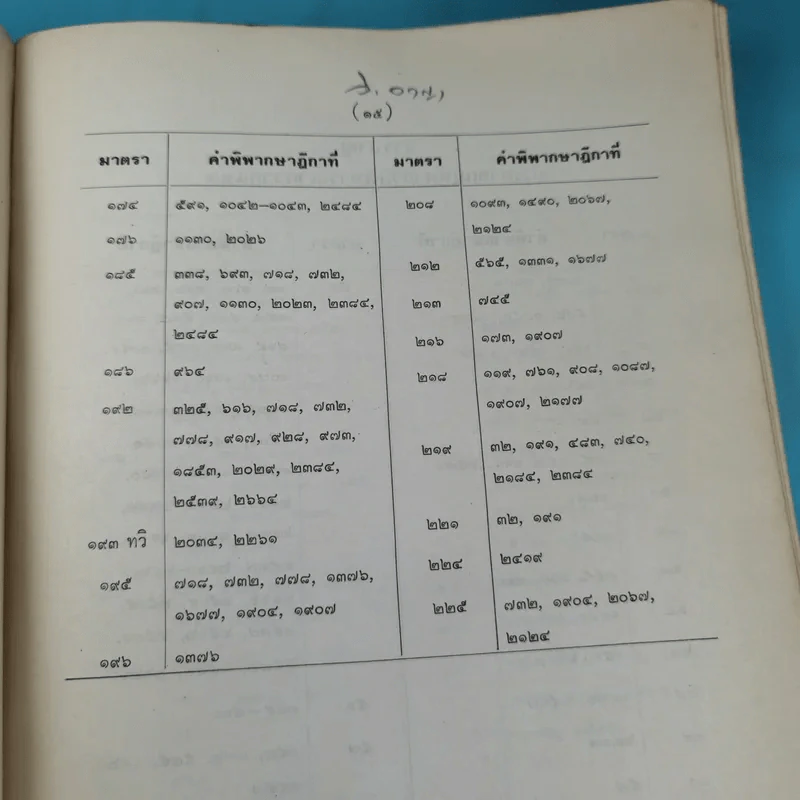 ว. อาญา
(๑๕)
มาตรา คำพิพากษาฎีกาที่ มาตรา คำพิพากษาฎีกาที่
๑๗๔ ๕๙๑, ๑๐๔๒–๑๐๔๓, ๒๔๘๔
๑๗๖ ๑๑๓๐, ๒๐๒๖
๑๘๕ ๓๓๘, ๖๙๓, ๗๑๘, ๗๓๒,
๙๐๗, ๑๑๓๐, ๒๐๒๓, ๒๓๘๔,
๒๔๘๔
๑๘๖ ๙๖๔
๑๙๒ ๓๒๕, ๖๑๖, ๗๑๘, ๗๓๒,
๗๗๘, ๙๑๗, ๙๒๘, ๙๗๓,
๑๘๕๓, ๒๐๒๙, ๒๓๘๔,
๒๕๓๙, ๒๖๖๔
๑๙๓ ทวิ ๒๐๓๔, ๒๒๖๑
๑๙๕ ๗๑๘, ๗๓๒, ๗๗๘, ๑๓๗๖,
๑๖๗๗, ๑๙๐๔, ๑๙๐๗
๑๙๖ ๑๓๗๖
๒๐๘ ๑๐๙๓, ๑๔๙๐, ๒๐๖๗,
๒๑๒๔
๒๑๒ ๕๖๕, ๑๓๓๑, ๑๖๗๗
๒๑๓ ๗๔๕
๒๑๖ ๑๗๓, ๑๙๐๗
๒๑๘ ๑๑๙, ๗๖๑, ๙๐๘, ๑๐๘๗,
๑๙๐๗, ๒๑๗๗
๒๑๙ ๓๒, ๑๙๑, ๔๘๓, ๗๔๐,
๒๑๘๔, ๒๓๘๔
๒๒๑ ๓๒, ๑๙๑
๒๒๔ ๒๔๑๙
๒๒๕ ๗๓๒, ๑๙๐๔, ๒๐๖๗,
๒๑๒๔